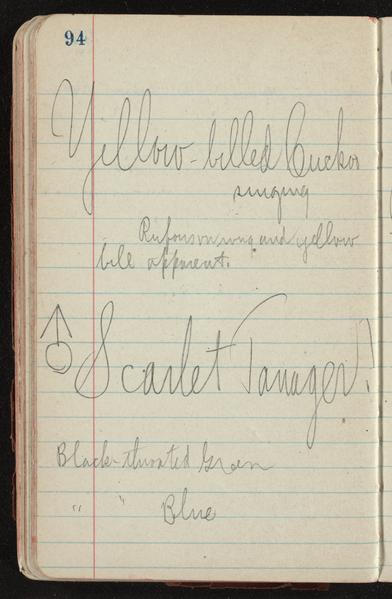 94
Yellow-billed Cuckoo
singing
Rufous on wing and yellow
bill apparent.
♂ Scarlet Tanager!
Black-throated Green
" " Blue